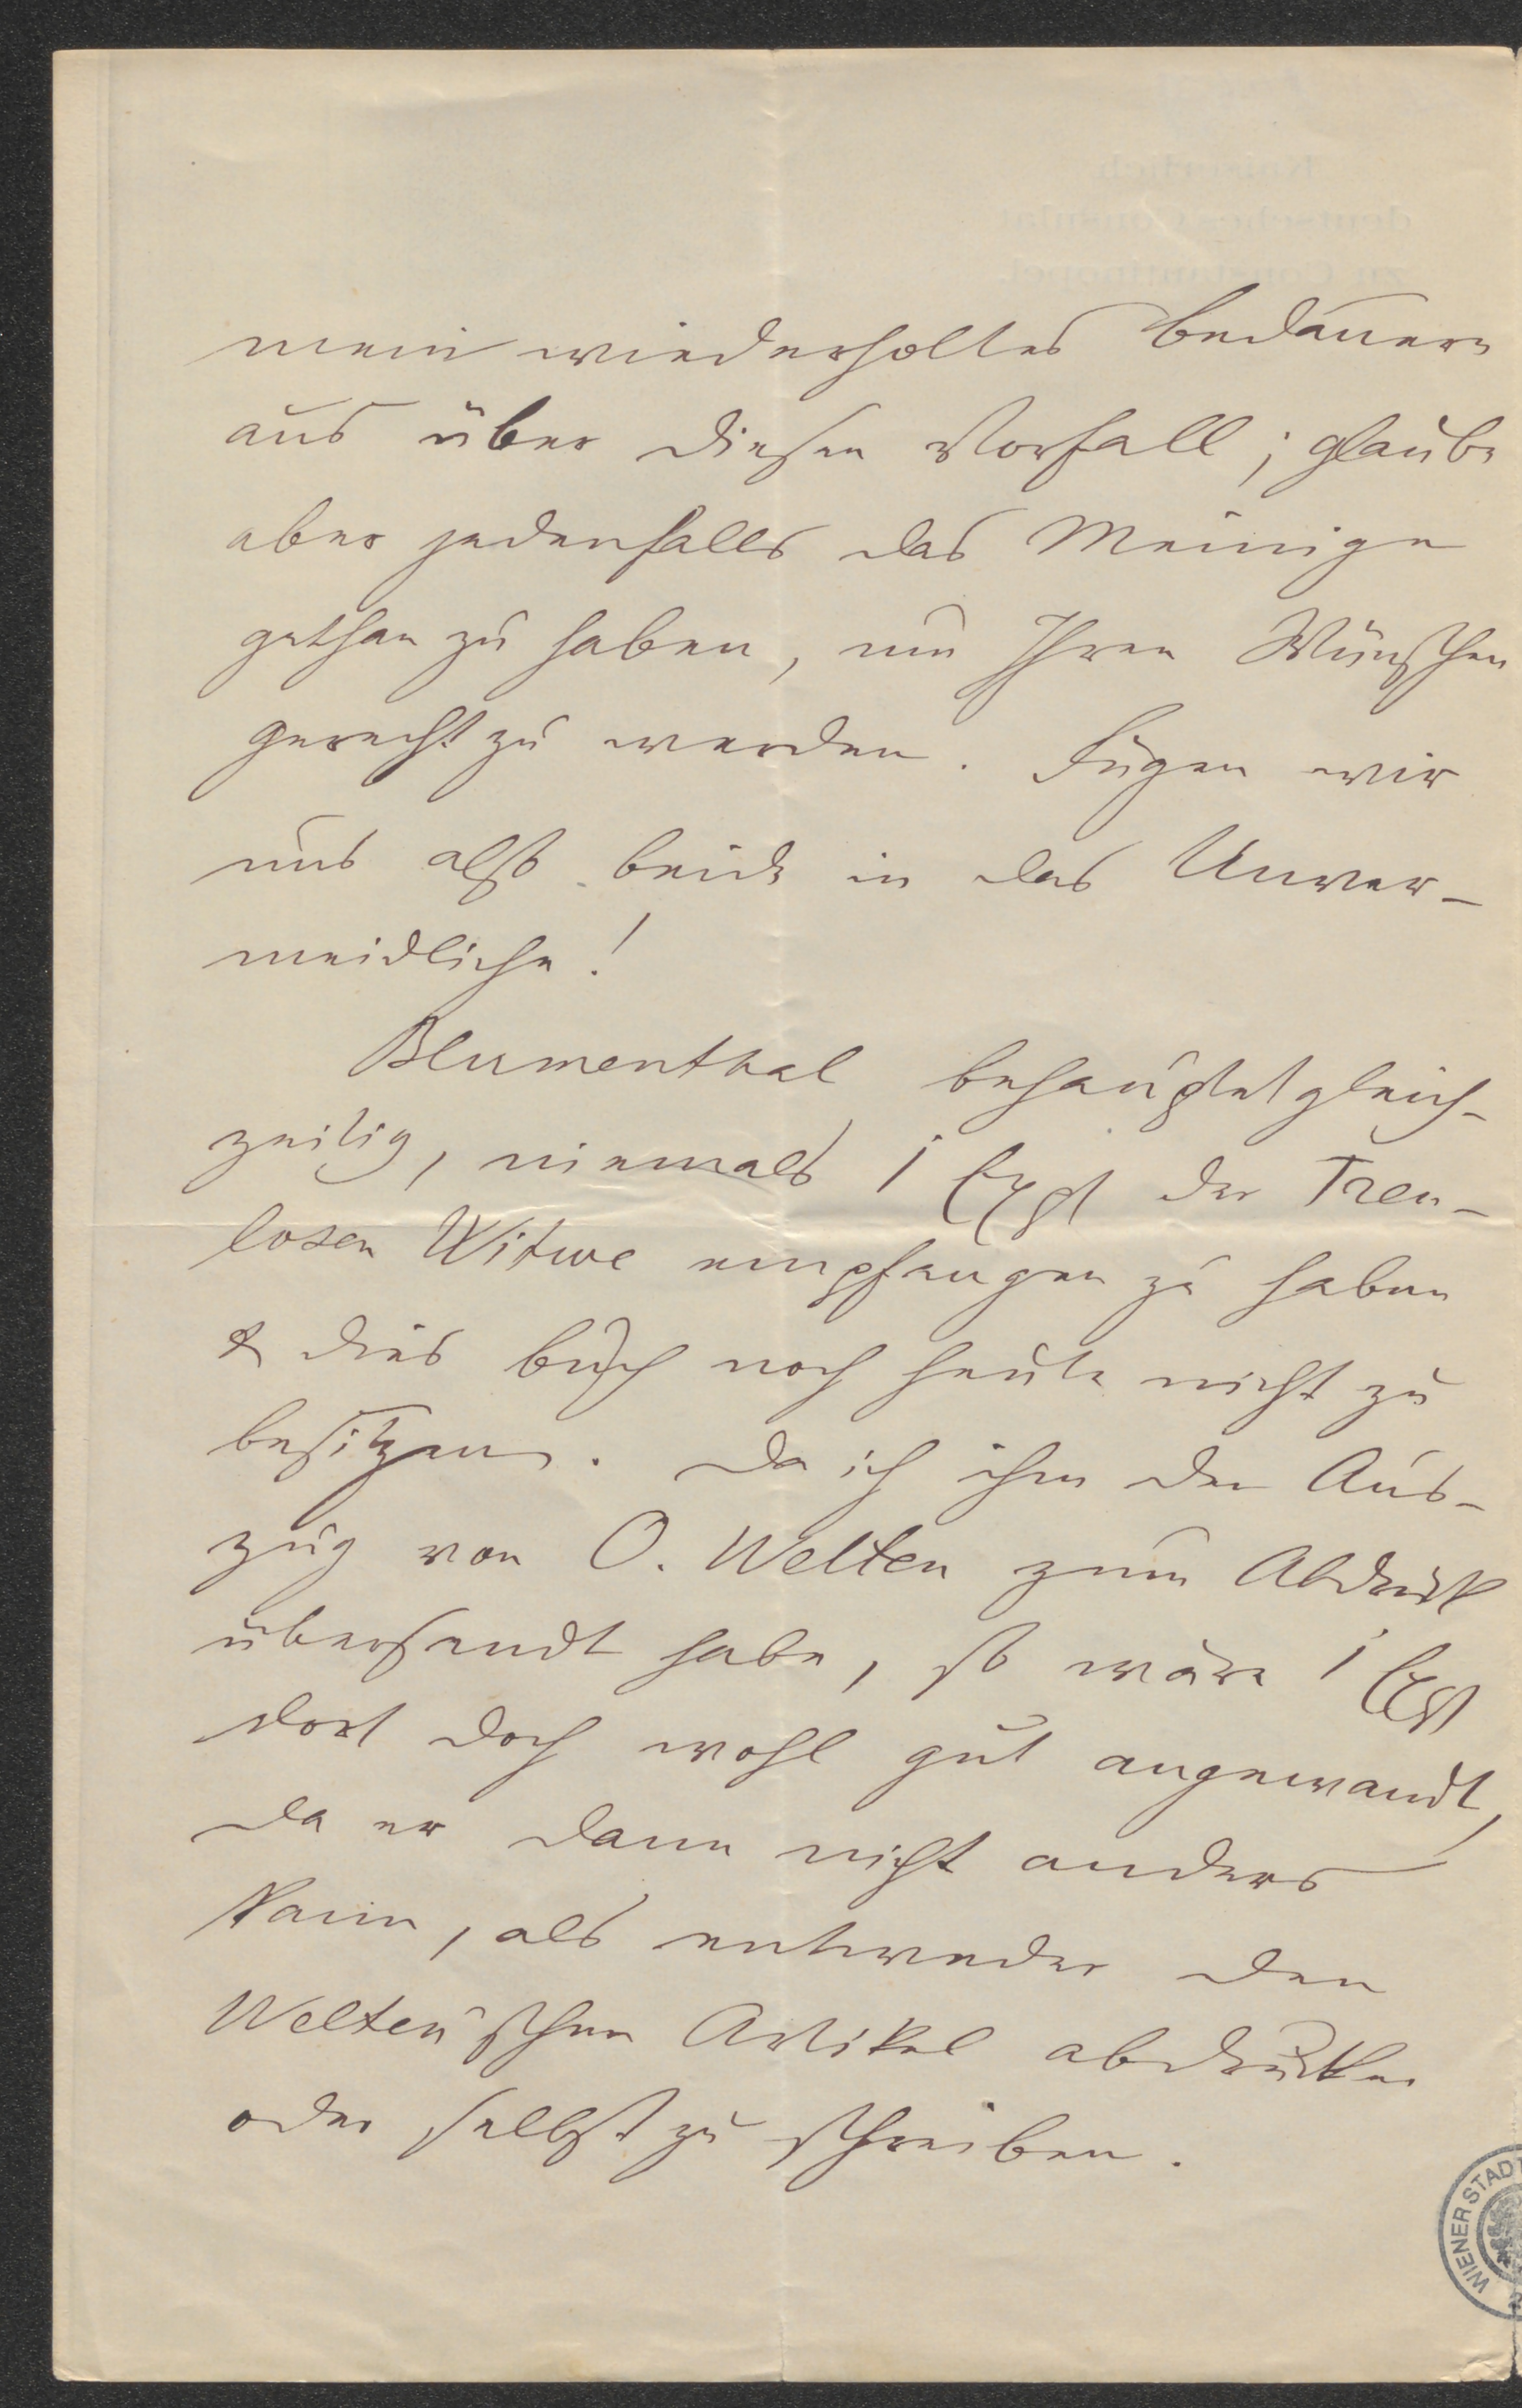 mein wiederholtes Bedauern
aus über diesen Vorfall; glaube
aber jedenfalls das Meinige
gethan zu haben, um Ihren Wünschen
gerecht zu werden. Fügen wir
uns also beide in das Unver-
meidliche!
Blumenthal behauptet gleich-
zeitig, niemals 1 Expl der Treu-
losen Witwe empfangen zu haben
& dies Buch noch heute nicht zu
besitzen. Da ich ihm den Aus-
zug von O. Welten zum Abdruck
übersandt habe, so wäre 1 Expl
dort doch wohl gut angewandt,
da er dann nicht anders
kann, als entweder den
Welten'schen Artikel abdrucken
oder selbst zu schreiben.
WIENER STADT